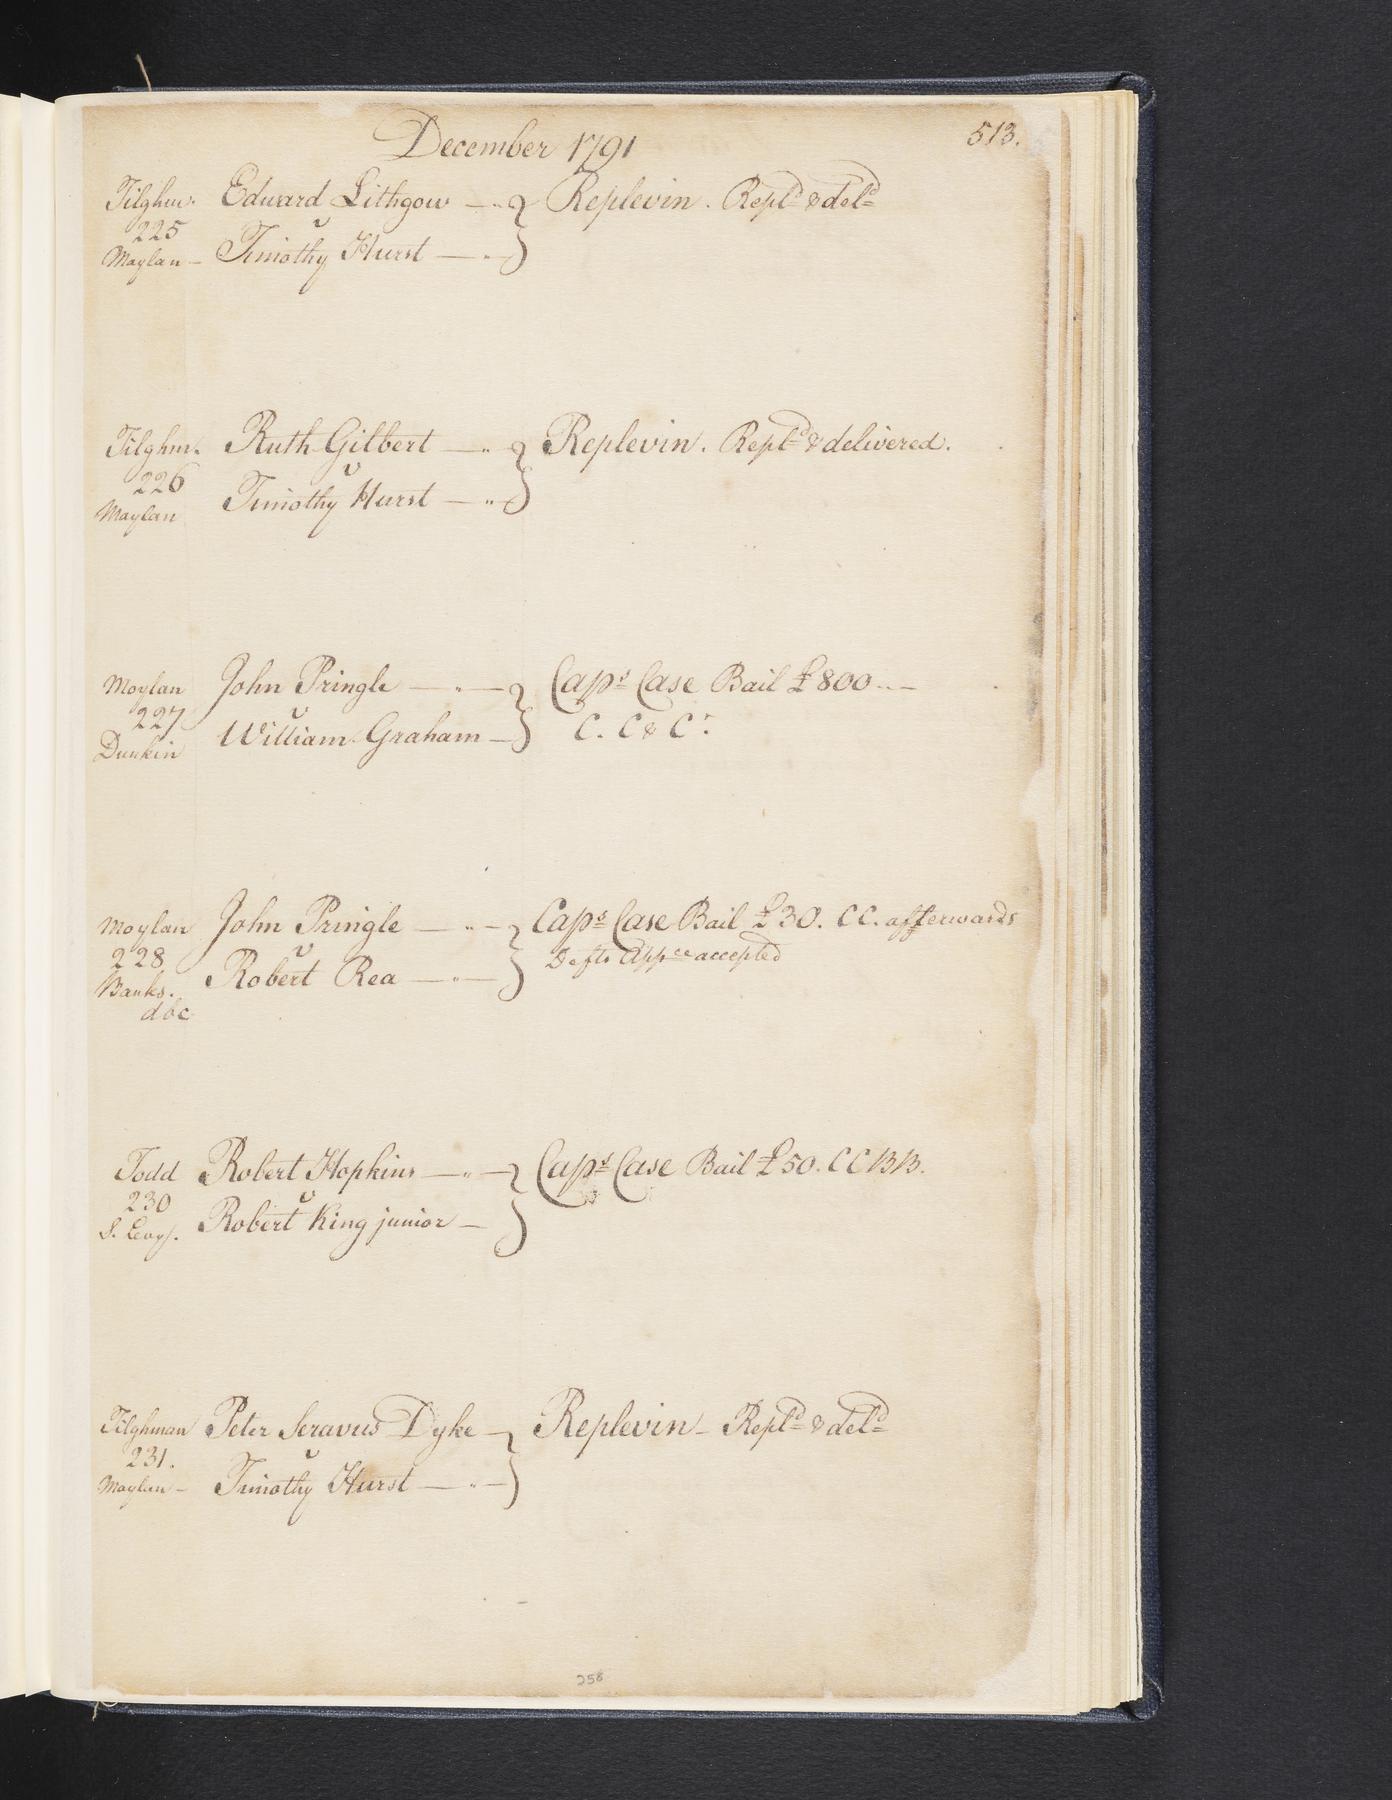 December 1791
513.
Tilghm. Edward Lithgow } Replevin. Repl^d & del^d
225 v
Moylan - Timothy Hurst
Tilghm. Ruth Gilbert } Replevin. Repl^d & delivered.
226 v
Moylan Timothy Hurst
Moylan John Pringle } Cap^s Case Bail £800
227 v
Dunkin William Graham C. C & C^r
Moylan John Pringle } Cap^s Case Bail £30. CC. afterwards
228 v Defts App^ce accepted
Banks. Robert Rea
dbc
Todd Robert Hopkins } Cap^s Case Bail £50. CC BB.
230 v
S. Levy. Robert King junior
Tilghman Peter Seravus Dyke } Replevin - Repl^d & del^d
231. v
Moylan - Timothy Hurst
258